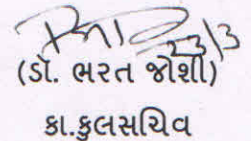 23/3
(ડૉ. ભરત જોશી)
કા.કુલસચિવ